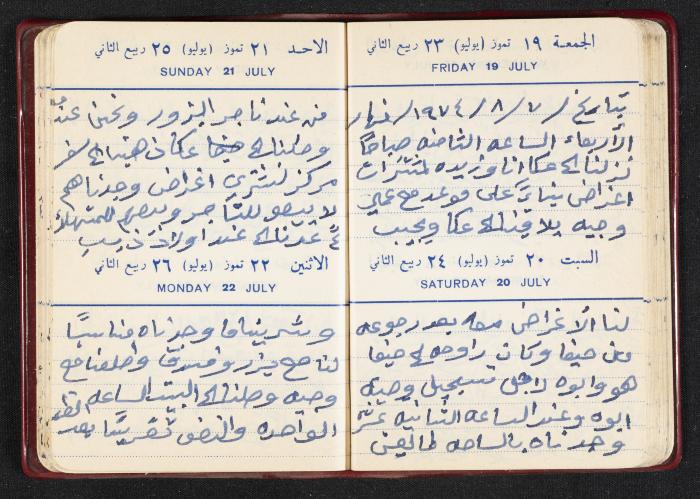 الجمعة ١٩ تموز (يوليو) ٢٣ ربيع الثاني
FRIDAY 19 JULY
بتاريخ / ٧ / ٨ / ١٩٧٤ / نهار
الأربعاء الساعه الثامنه صباحًا
نزلنا الى عكا انا وزيده لمشترات
اغراض بناءً على موعد مع عمي
وجيه يلاقينا الى عكا ويجيب
السبت ٢٠ تموز (يوليو) ٢٤ ربيع الثاني
SATURDAY 20 JULY
لنا الأغراض معه بعد رجوعه
من حيفا وكان الى حيفا
هو وابوه لاجل تسجيل وجيه
ابوه وعند الساعه الثانيه عشر
وجدناه بالساحه طالعين
الاحد ٢١ تموز (يوليو) ٢٥ ربيع الثاني
SUNDAY 21 JULY
من عند تاجر البزور ونحن عنده
وصلنا الى عكا ذهبنا الى
مركز لنشتري اغراض وجدناهم
لا يبيعو للتاجر وبيعهم للمستهلك
ثم عدنا الى عند اولاد ذيب
الاثنين ٢٢ تموز (يوليو) ٢٦ ربيع الثاني
MONDAY 22 JULY
وشرينا ما وجدناه مناسبًا
لنا مع بزر وفستق وطلعنا مع
وجيه وصلنا الى البيت الساعه
الواحده والنصف تقريبًا بعد الظهر